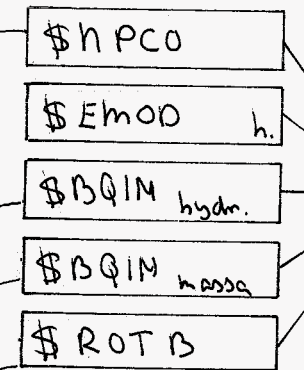 $ h PCO
$ EmOD h.
$ BQIM hydr.
$ BQIM massa
$ ROT B